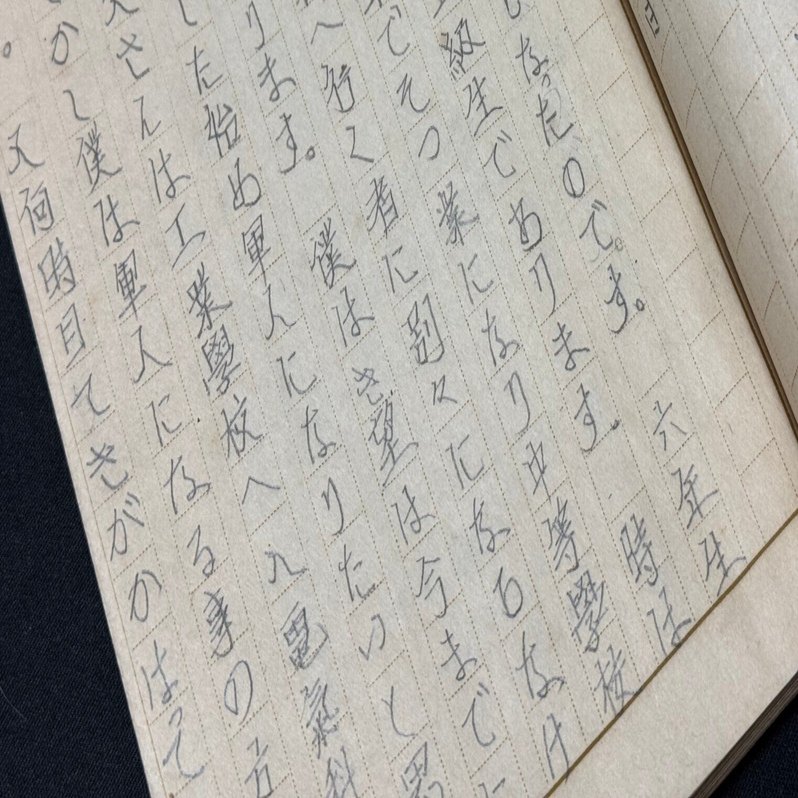 なったのです。六年生
級生であります。時は
でそつ業になり中等學校
へ行く者に別々になるなけ
ります。僕はき望は今まで
した始め軍人になりたいと思
さんは工業學校へ入電氣科
かし僕は軍人になる事の方
。又何時目てきがかはって